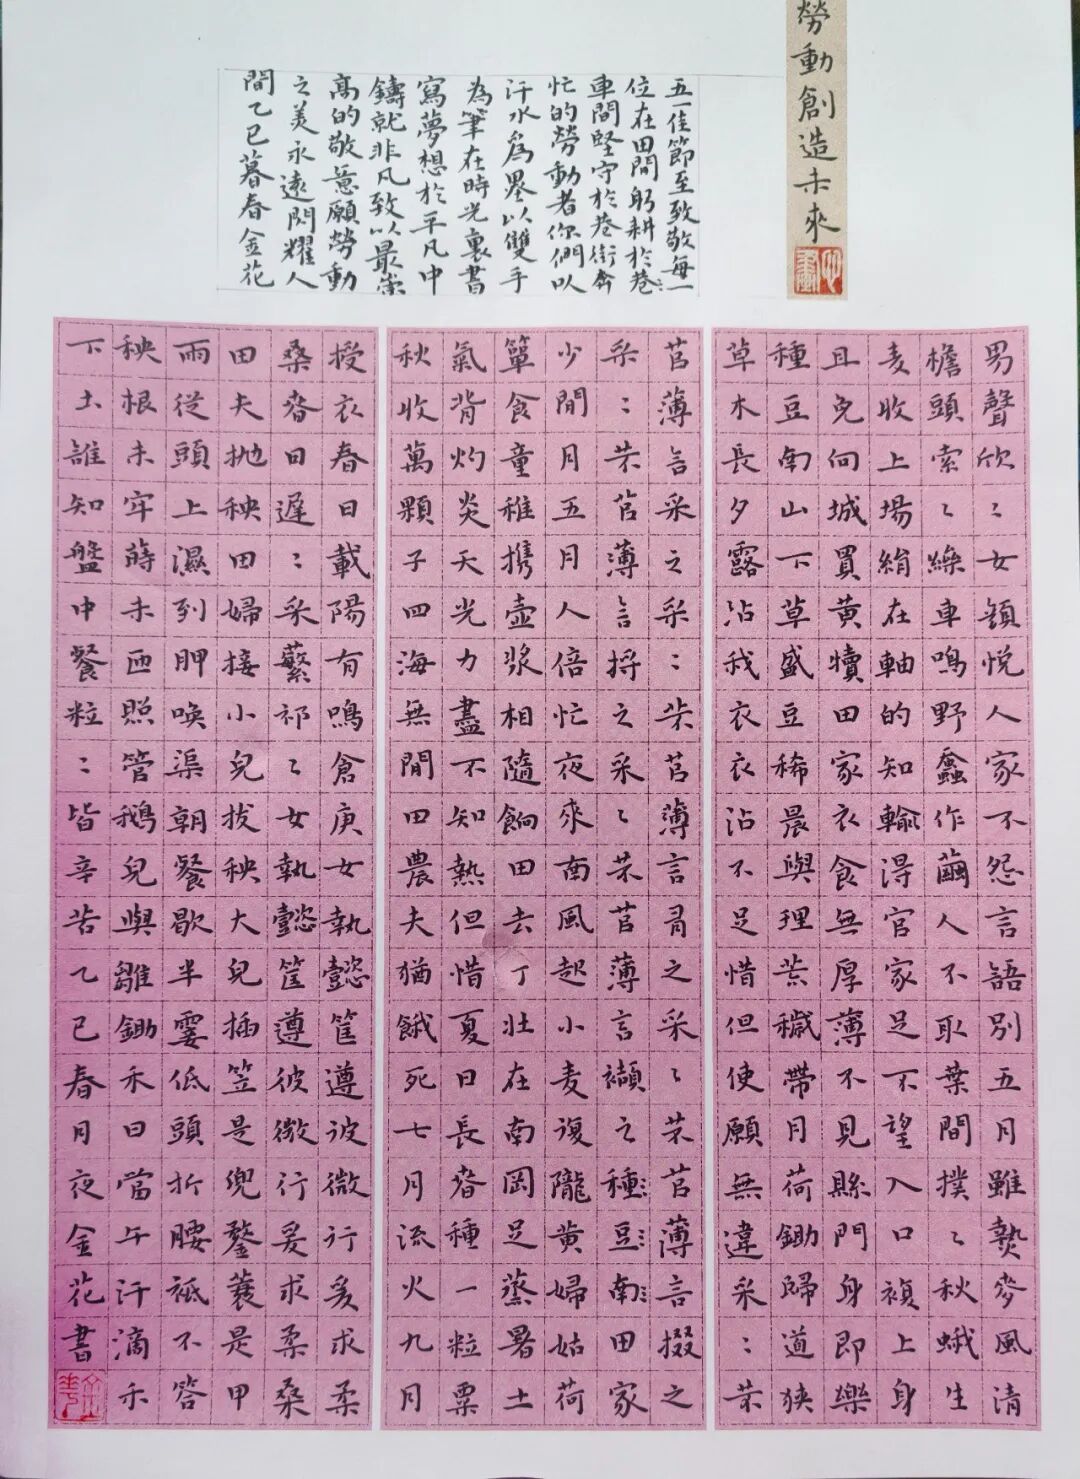 勞動創造未來
五一佳節至致敬每一
位在田間躬耕於巷
車間堅守於巷街奔
忙的勞動者你們以
汗水爲墨以雙手
為筆在時光裏書
寫夢想於平凡中
鑄就非凡致以最崇
高的敬意願勞動
之美永遠閃耀人
間乙巳暮春金花
男聲欣〻女顏悅人家不怨言語別五月雖熱麥風清
檐頭索〻繰車鳴野蠶作繭人不取葉間撲〻秋蛾生
麦收上場絹在軸的知輸得官家足不望入口複上身
且免向城買黃犢田家衣食無厚薄不見縣門身即樂
種豆南山下草盛豆稀晨興理荒穢帶月荷鋤歸道狹
草木長夕露沾我衣衣沾不足惜但使願無違采〻芣
苢薄言采之采〻芣苢薄言有之采〻芣苢薄言掇之
采〻芣苢薄言捋之采〻芣苢薄言襭之種豆南田家
少閒月五月人倍忙夜來南風起小麦覆隴黃婦姑荷
簞食童稚攜壺漿相隨餉田去丁壯在南岡足蒸暑土
氣背灼炎天光力盡不知熱但惜夏日長春種一粒粟
秋收萬顆子四海無閒田農夫猶餓死七月流火九月
授衣春日載陽有鳴倉庚女執懿筐遵彼微行爰求柔
桑春日遲〻采蘩祁〻女執懿筐遵彼微行爰求柔桑
田夫拋秧田婦接小兒拔秧大兒插笠是兜鍪蓑是甲
雨從頭上濕到胛喚渠朝餐歇半霎低頭折腰祗不答
秧根未牢蒔未匝照管鵝兒與雛鋤禾日當午汗滴禾
下土誰知盤中餐粒〻皆辛苦乙巳春月夜金花書